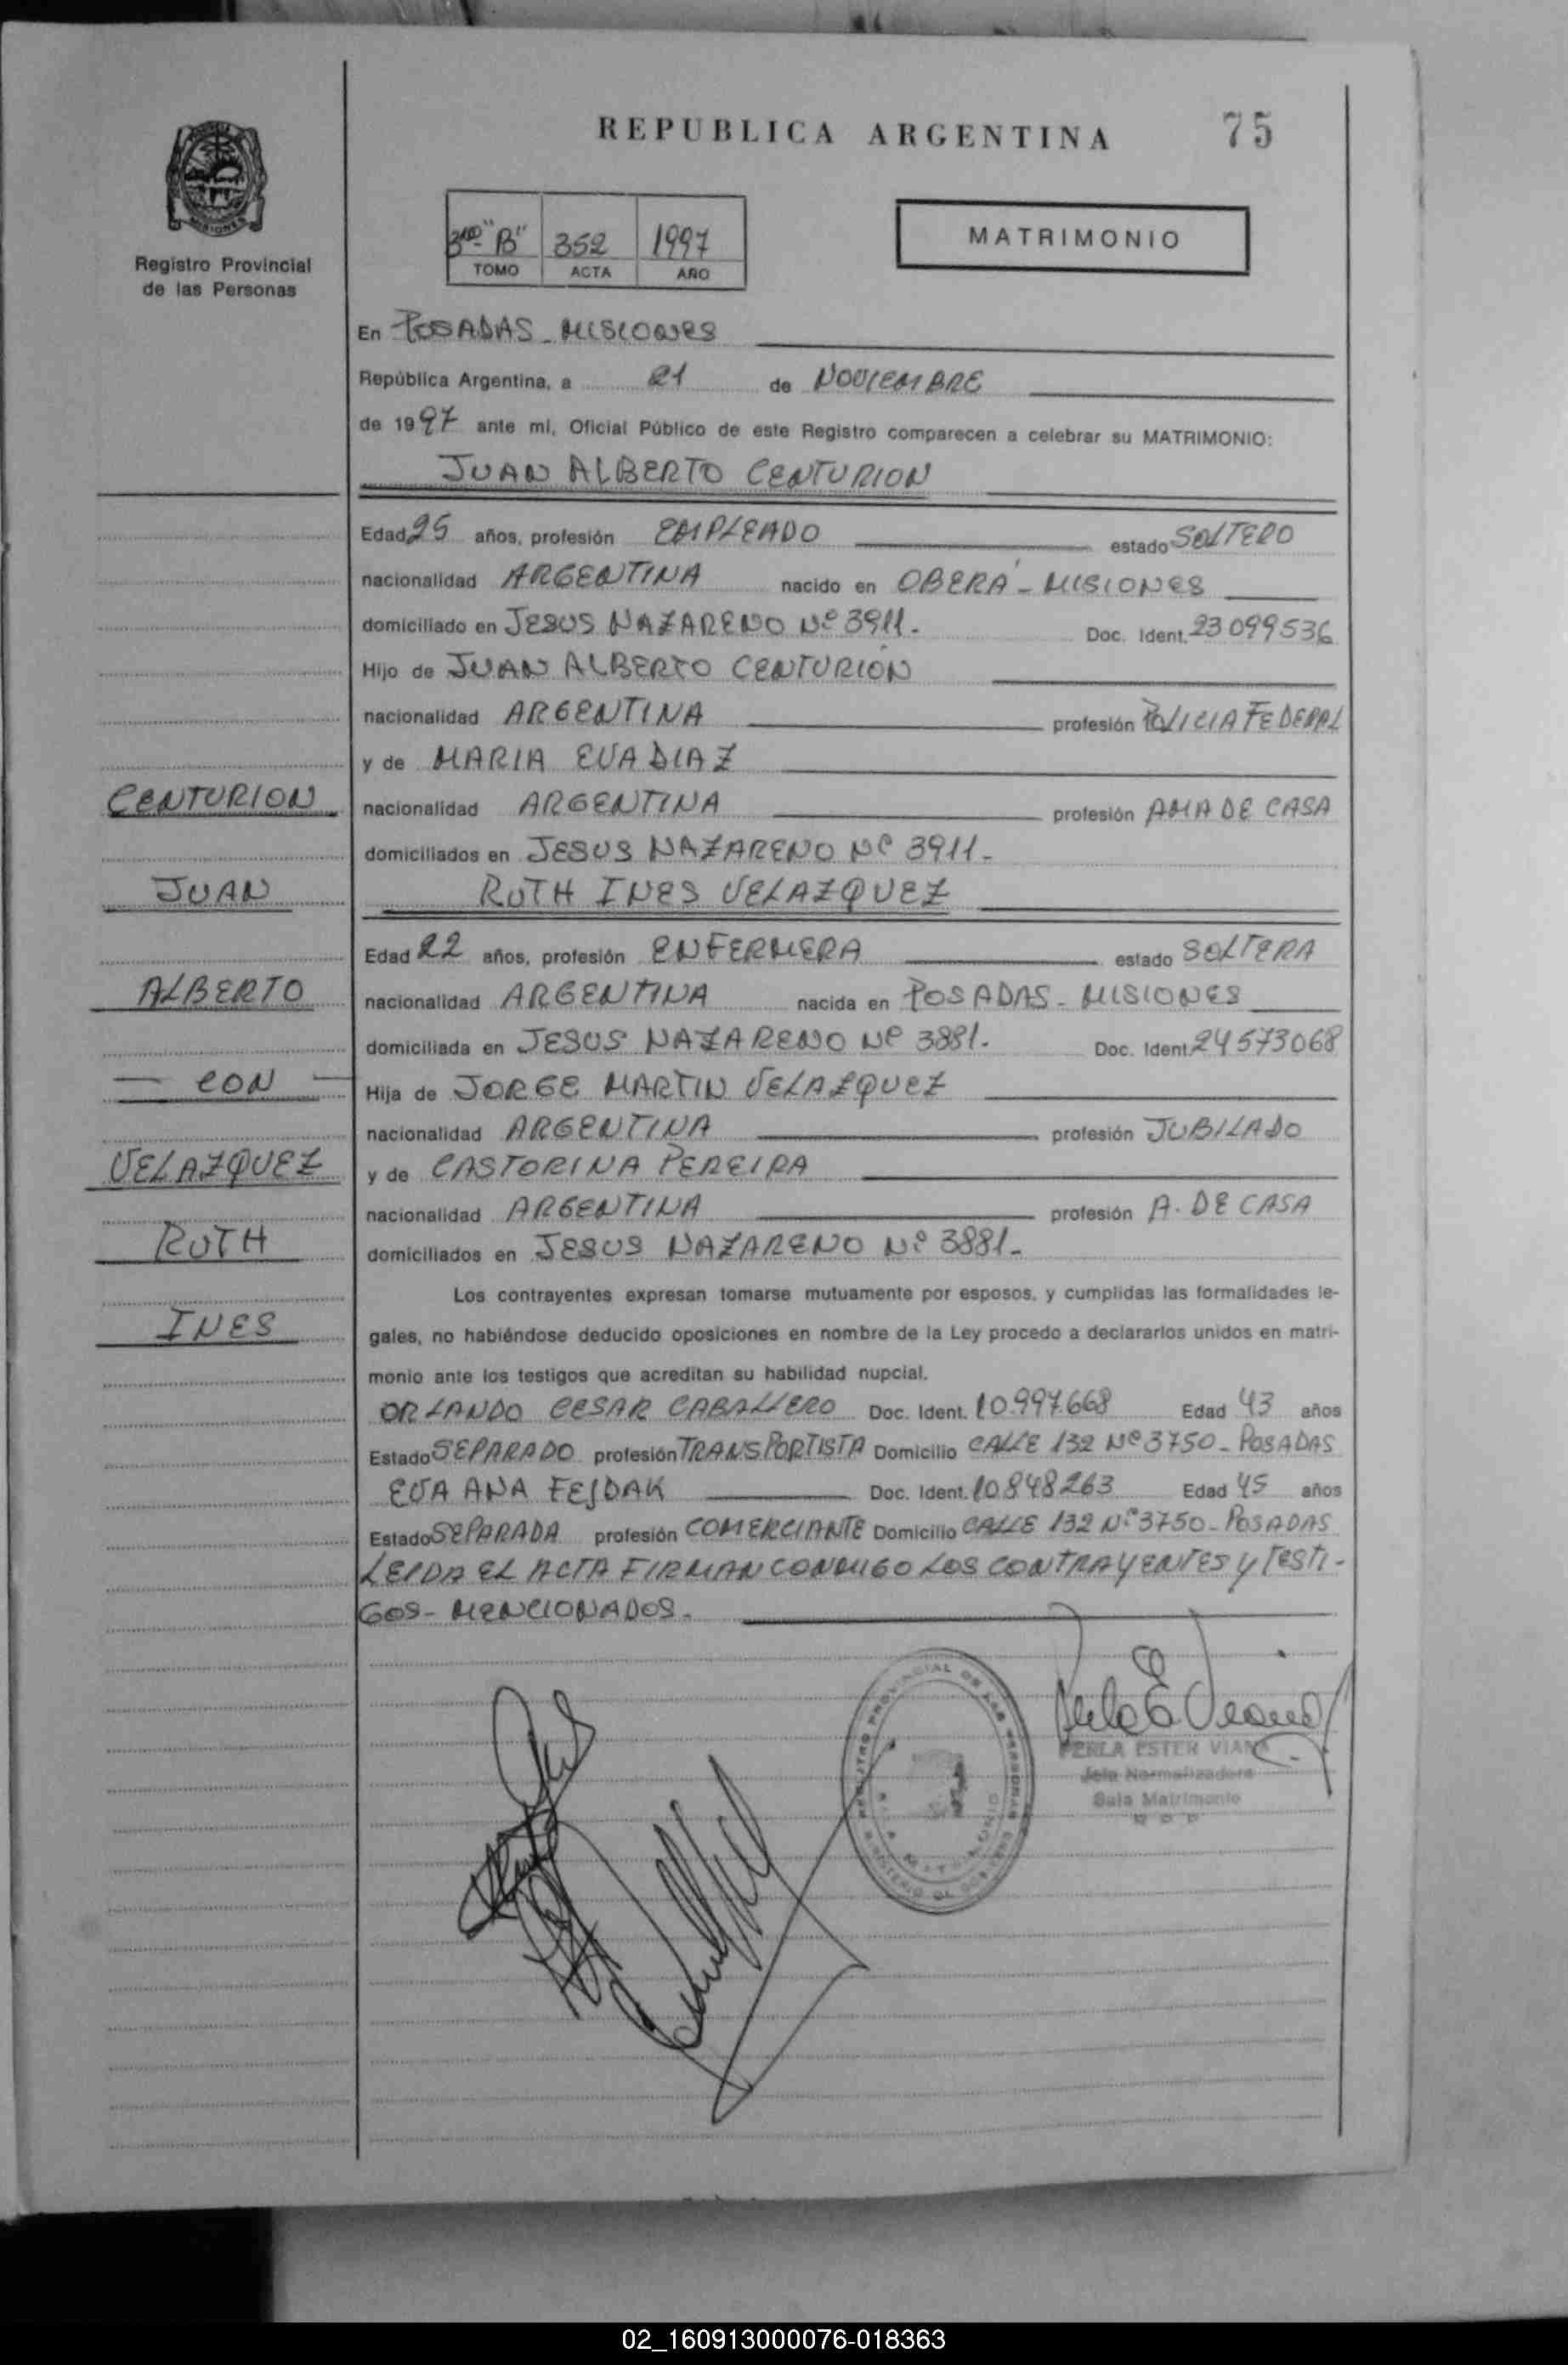 REPUBLICA ARGENTINA
75
MISIONES
Registro Provincial
de las Personas
3ro "B" 352 1997
TOMO ACTA AÑO
MATRIMONIO
En POSADAS - MISIONES
República Argentina, a 21 de NOVIEMBRE
de 1997 ante mí, Oficial Público de este Registro comparecen a celebrar su MATRIMONIO:
JUAN ALBERTO CENTURION
Edad 25 años, profesión EMPLEADO estado SOLTERO
nacionalidad ARGENTINA nacido en OBERÁ - MISIONES
domiciliado en JESUS NAZARENO Nº 3911.- Doc. Ident. 23099536
Hijo de JUAN ALBERTO CENTURIÓN
nacionalidad ARGENTINA profesión POLICIA FEDERAL
y de MARIA EVA DIAZ
nacionalidad ARGENTINA profesión AMA DE CASA
domiciliados en JESUS NAZARENO Nº 3911-
RUTH INES VELAZQUEZ
Edad 22 años, profesión ENFERMERA estado SOLTERA
nacionalidad ARGENTINA nacida en POSADAS - MISIONES
domiciliada en JESUS NAZARENO Nº 3881.- Doc. Ident. 24573068
Hija de JORGE MARTIN VELAZQUEZ
nacionalidad ARGENTINA profesión JUBILADO
y de CASTORINA PEREIRA
nacionalidad ARGENTINA profesión A. DE CASA
domiciliados en JESUS NAZARENO Nº 3881-
CENTURION
JUAN
ALBERTO
— CON —
VELAZQUEZ
RUTH
INES
Los contrayentes expresan tomarse mutuamente por esposos, y cumplidas las formalidades le-
gales, no habiéndose deducido oposiciones en nombre de la Ley procedo a declararlos unidos en matri-
monio ante los testigos que acreditan su habilidad nupcial.
ORLANDO CESAR CABALLERO Doc. Ident. 10.997.668 Edad 43 años
Estado SEPARADO profesión TRANSPORTISTA Domicilio CALLE 132 Nº 3750 - POSADAS
EVA ANA FEJDAK Doc. Ident. 10848263 Edad 45 años
Estado SEPARADA profesión COMERCIANTE Domicilio CALLE 132 Nº 3750 - POSADAS
LEIDA EL ACTA FIRMAN CONMIGO LOS CONTRAYENTES Y TESTI-
GOS - MENCIONADOS.
REGISTRO PROVINCIAL DE LAS PERSONAS
PERLA ESTER VIANA
Jefa Normalizadora
Sala Matrimonio
02_160913000076-018363